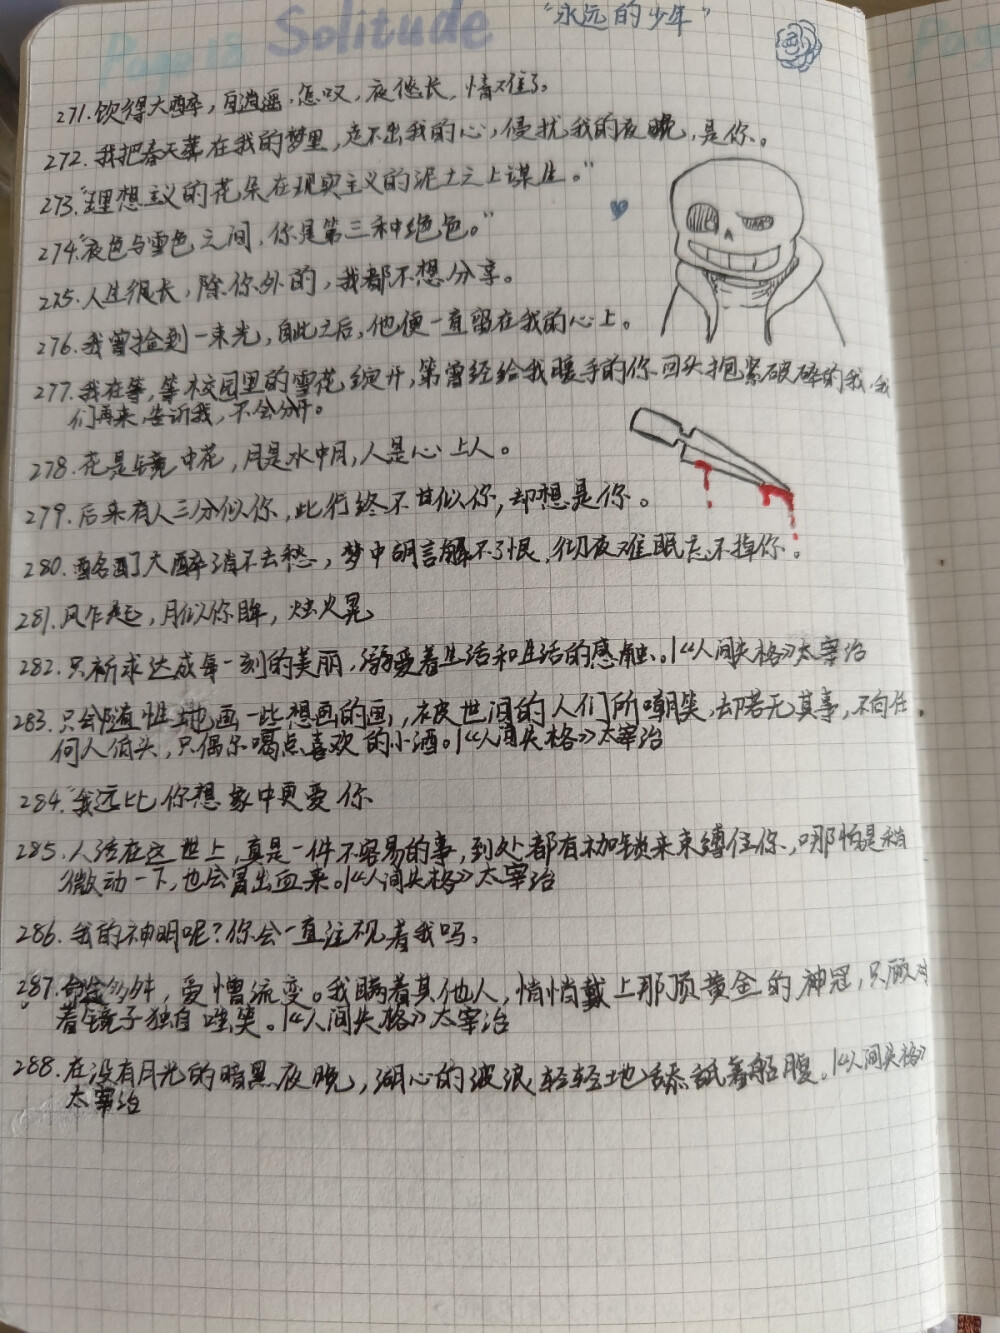 Page 18 Solitude "永远的少年"
271.饮得大醉,自逍遥,怎叹,夜悠长,情难了。
272.我把春天葬在我的梦里,走不出我的心,侵扰我的夜晚,是你。
273."理想主义的花朵在现实主义的泥土之上谋生。"
274."夜色与雪色之间,你是第三种绝色。"
275.人生很长,除你外的,我都不想分享。
276.我曾捡到一束光,自此之后,他便一直留在我的心上。
277.我在等,等校园里的雪花绽开,等曾经给我暖手的你回头抱紧破碎的我,我
们再来,告诉我,不会分开。
278.花是镜中花,月是水中月,人是心上人。
279.后来有人三分似你,此行终不甘似你,却想是你。
280.酩酊大醉消不去愁,梦中胡言解不了恨,彻夜难眠忘不掉你。
281.风乍起,月似你眸,烛火晃
282.只祈求达成每一刻的美丽,溺爱着生活和生活的感触。|《人间失格》太宰治
283.只会随性地画一些想画的画,被世间的人们所嘲笑,却若无其事,不向任
何人低头,只偶尔喝点喜欢的小酒。|《人间失格》太宰治
284."我远比你想象中更爱你
285.人活在这世上,真是一件不容易的事,到处都有枷锁来束缚住你,哪怕是稍
微动一下,也会冒出血来。|《人间失格》太宰治
286.我的神明呢?你会一直注视着我吗。
287.命途多舛,爱憎流变。我瞒着其他人,悄悄戴上那顶黄金的神冠,只顾对
着镜子独自嗤笑。|《人间失格》太宰治
288.在没有月光的暗黑夜晚,湖心的波浪轻轻地舔舐着船腹。|《人间失格》
太宰治